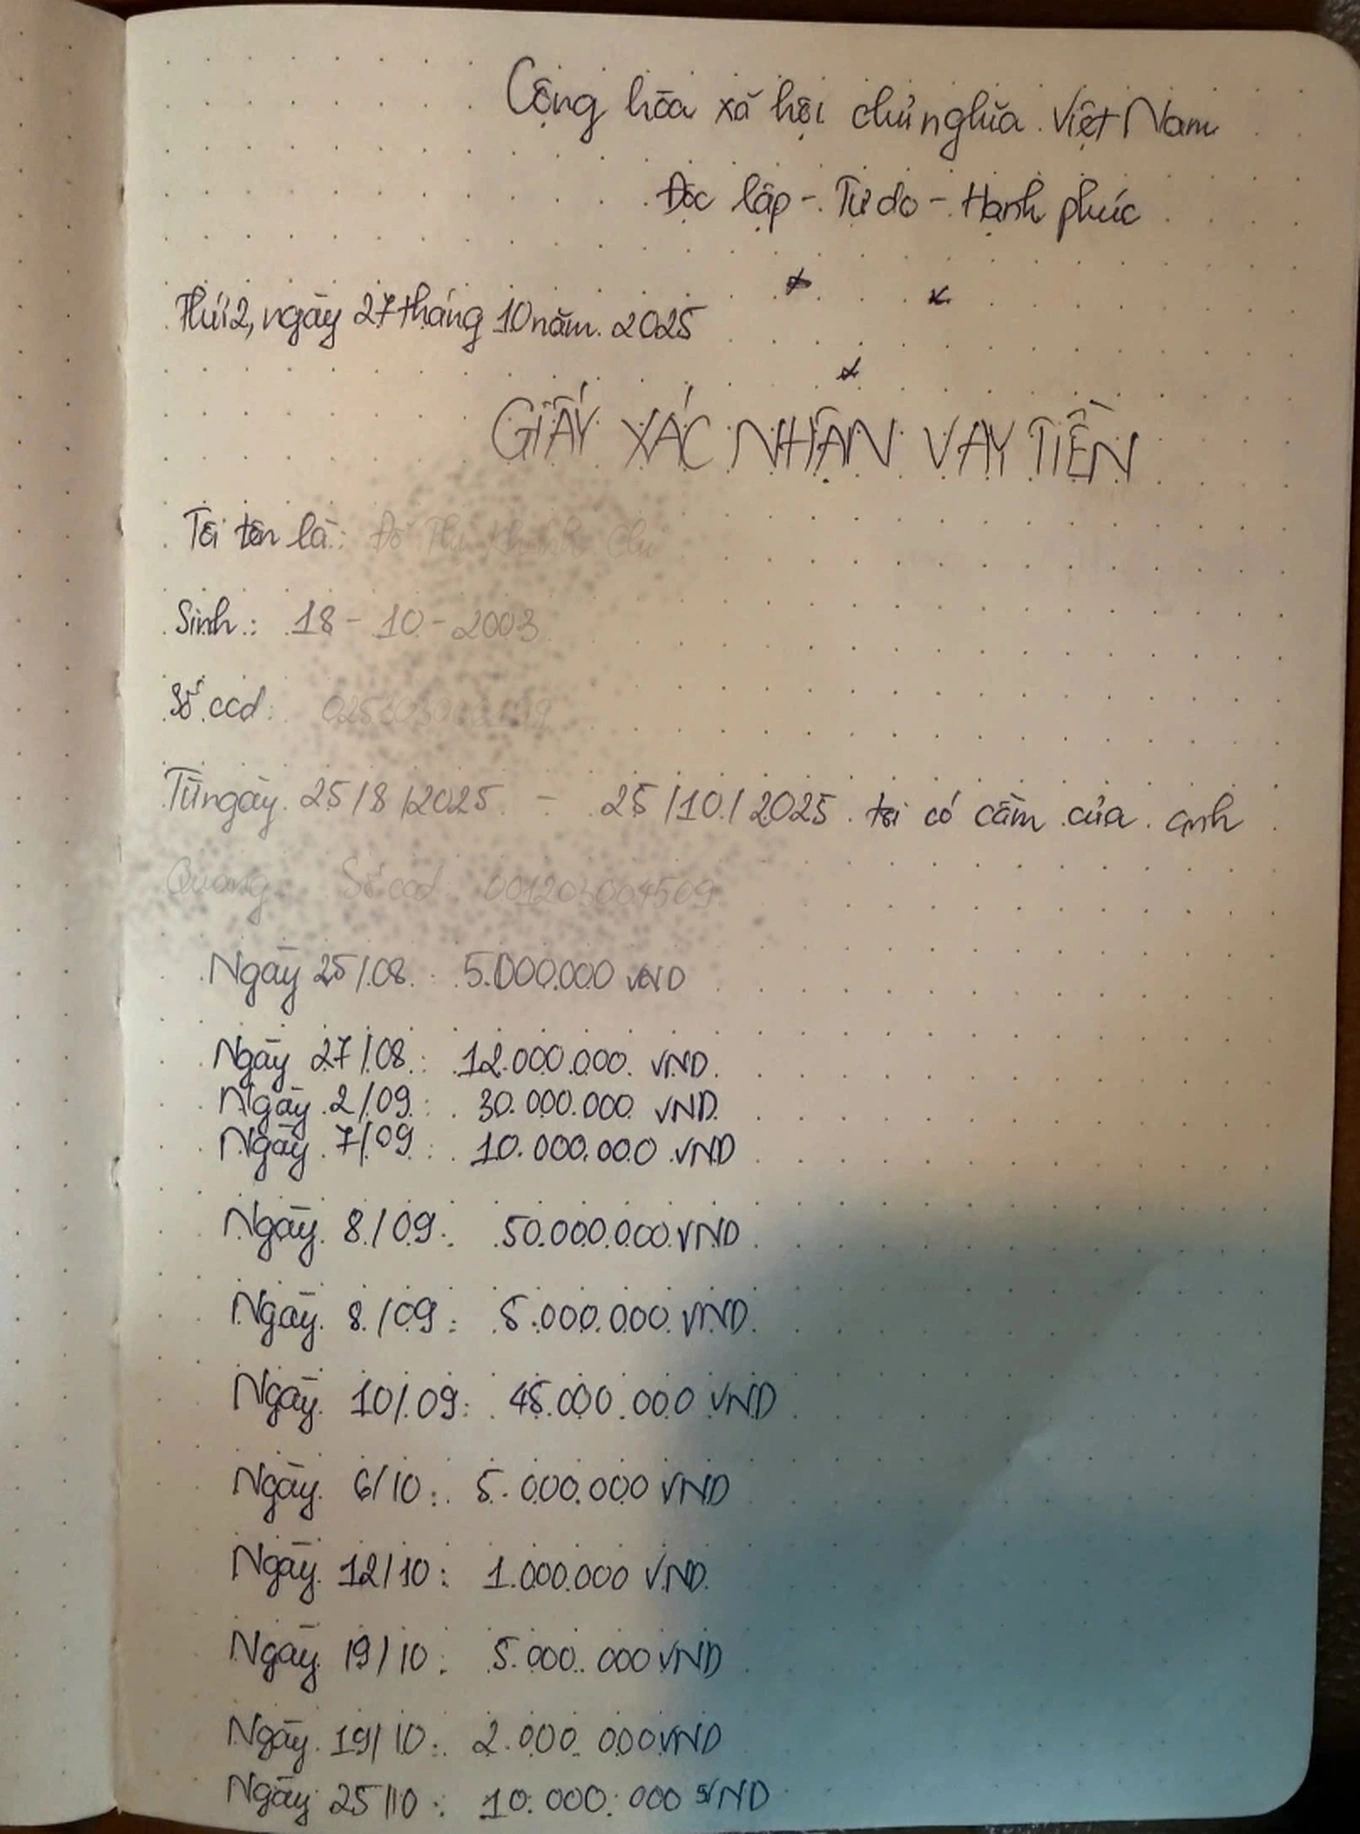 Cộng hòa xã hội chủ nghĩa Việt Nam
Độc lập - Tự do - Hạnh phúc
Thứ 2, ngày 27 tháng 10 năm 2025
GIẤY XÁC NHẬN VAY TIỀN
Tôi tên là: Đỗ Thị Khánh Chi
Sinh: 18 - 10 - 2003
Số ccd:
Từ ngày 25/8/2025 - 25/10/2025 tôi có cầm của anh
Quang Số ccd: 001203004509
Ngày 25/08: 5.000.000 VND
Ngày 27/08: 12.000.000 VND.
Ngày 2/09: 30.000.000 VND
Ngày 7/09: 10.000.000 VND
Ngày 8/09: 50.000.000 VND
Ngày 8/09: 5.000.000 VND.
Ngày 10/09: 45.000.000 VND
Ngày 6/10: 5.000.000 VND
Ngày 12/10: 1.000.000 VND.
Ngày 19/10: 5.000.000 VND
Ngày 19/10: 2.000.000 VND
Ngày 25/10: 10.000.000 VND